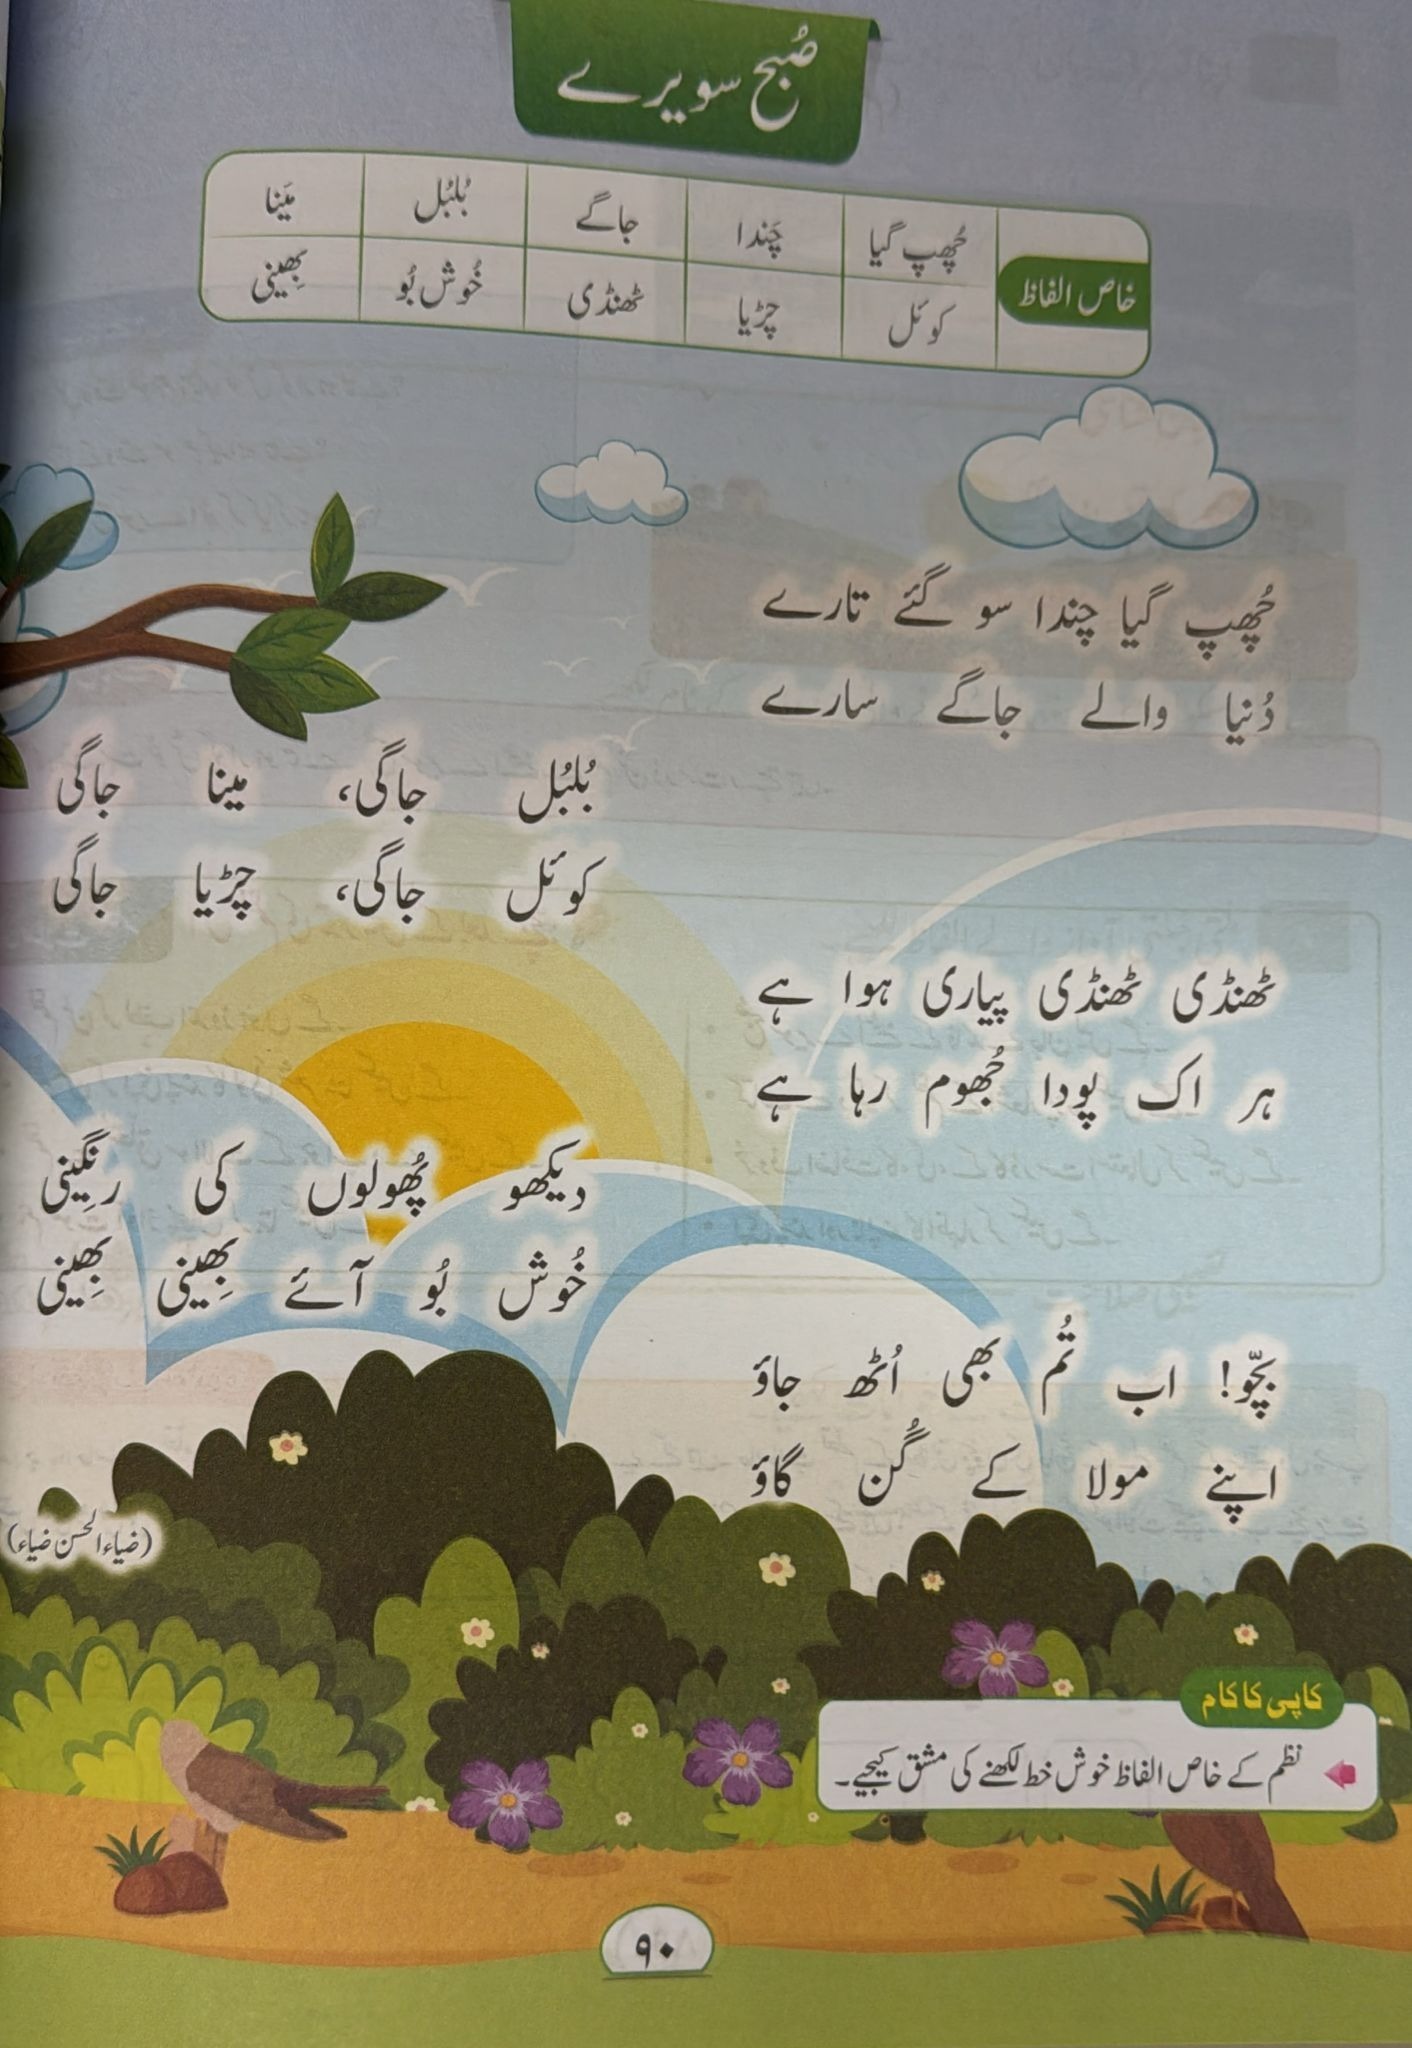 صُبح سویرے
خاص الفاظ
چُھپ گیا چَندا جاگے بُلبُل مَینا
کوئل چڑیا ٹھنڈی خُوش بُو بِھینی
چُھپ گیا چندا سو گئے تارے
دُنیا والے جاگے سارے
بُلبُل جاگی، مینا جاگی
کوئل جاگی، چڑیا جاگی
ٹھنڈی ٹھنڈی پیاری ہوا ہے
ہر اک پودا جُھوم رہا ہے
دیکھو پُھولوں کی رنگِینی
خُوش بُو آئے بِھینی بِھینی
بچّو! اب تُم بھی اُٹھ جاؤ
اپنے مولا کے گُن گاؤ
(ضیاء الحسن ضیاء)
کاپی کا کام
نظم کے خاص الفاظ خوش خط لکھنے کی مشق کیجیے۔
۹۰